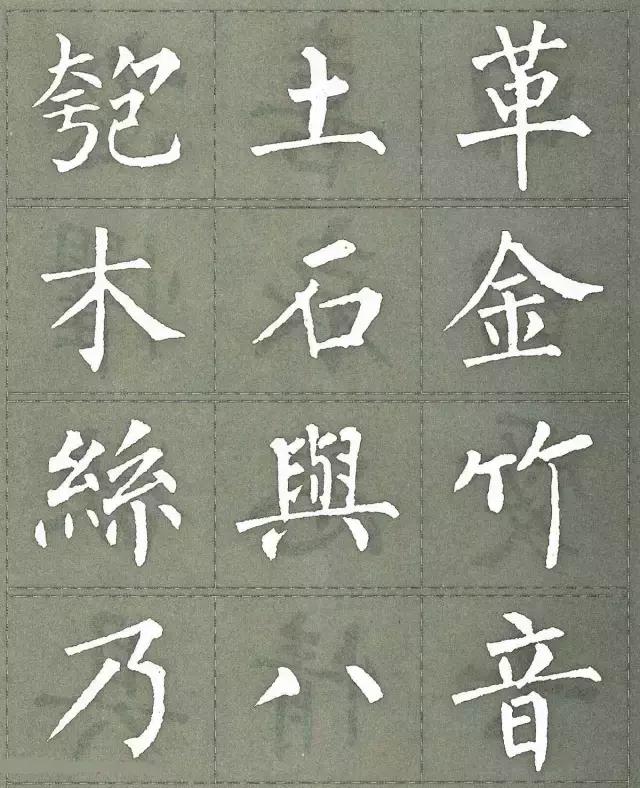 匏土革
木石金
絲與竹
乃八音